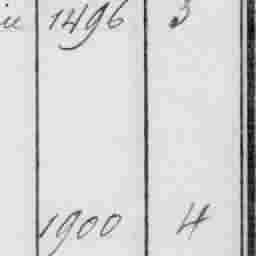 ie 1496 3
1900 4